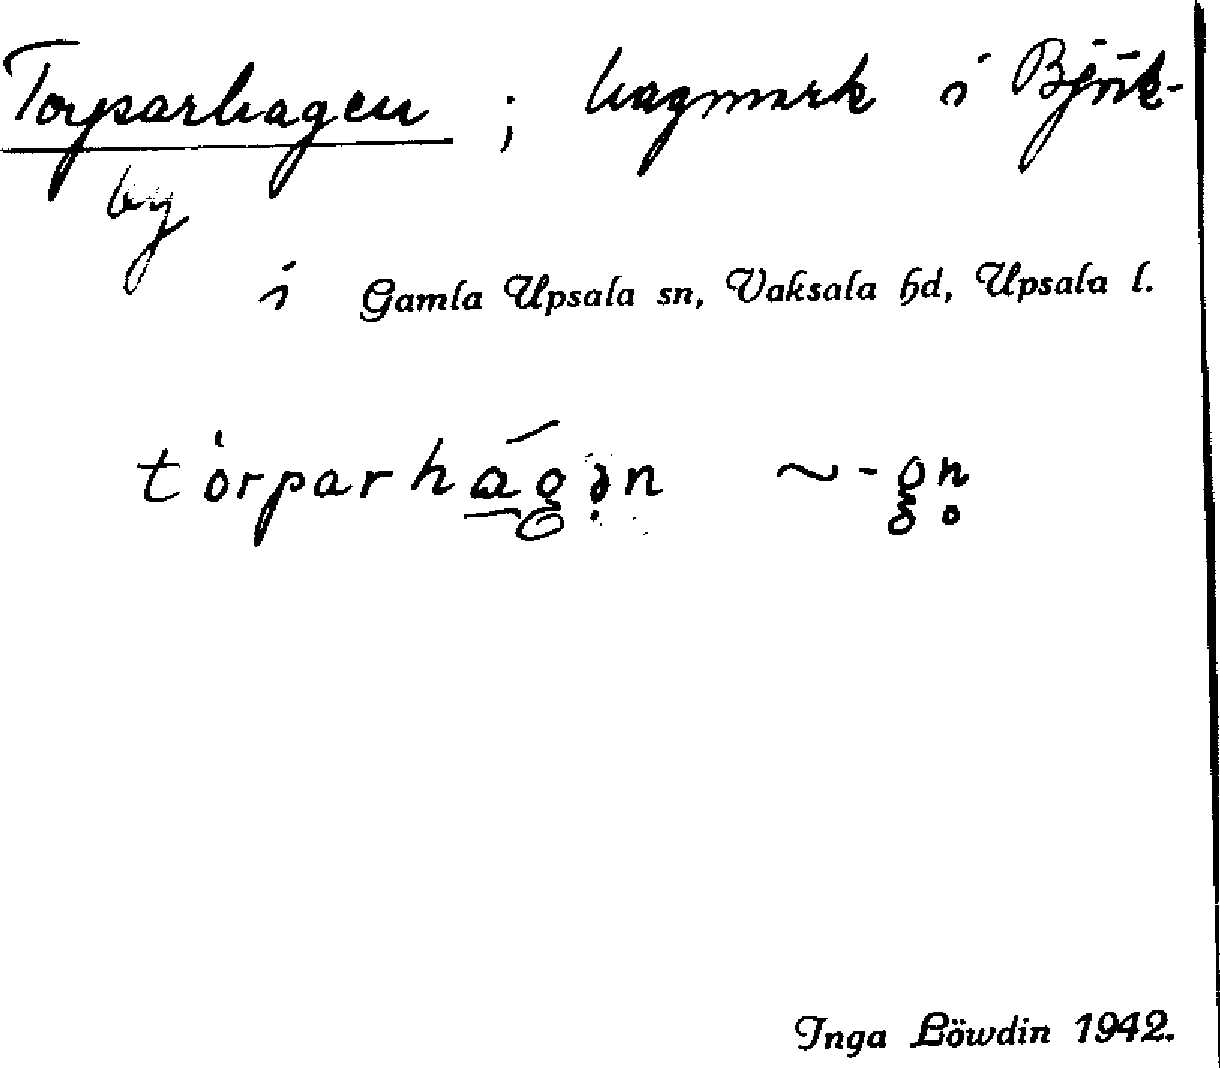 Torparhagen ; hagmark i Björk-
by
i Gamla Upsala sn, Vaksala hd, Upsala l.
tòrparhágən ~ -gn̥
Inga Löwdin 1942.